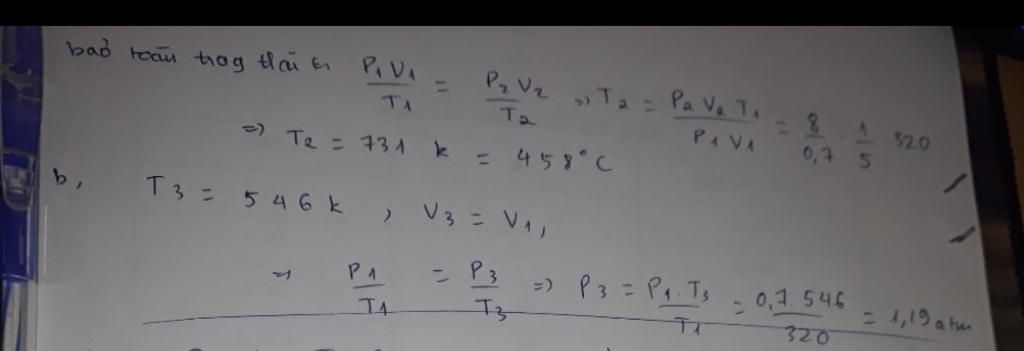 bảo toàn trạng thái P1V1/T1 = P2V2/T2 => T2 = P2V2T1/P1V1 = 8/0,7 . 1/5 320
=> T2 = 731 k = 458°C
b, T3 = 546k , V3 = V1,
=> P1/T1 = P3/T3 => P3 = P1.T3/T1 = 0,7.546/320 = 1,19 atm